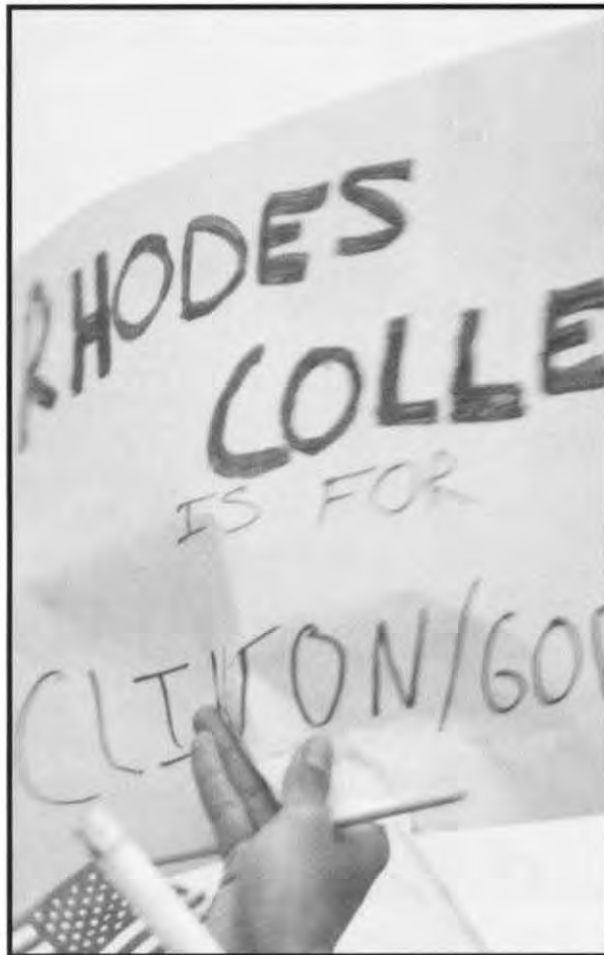 RHODES
COLLE
IS FOR
CLINTON/GOR